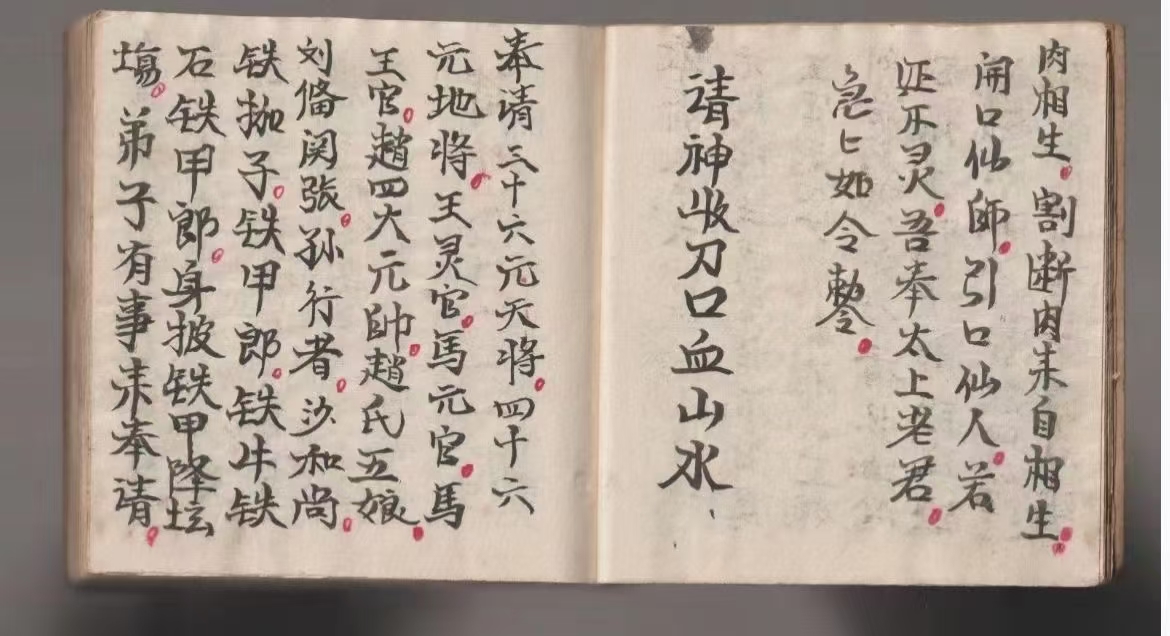 肉相生。割断肉来自相生。
开口仙師。引口仙人。若
不灵。吾奉太上老君。
急匕如令敕。
请神收刀口血山水
奉请三十六元天将。四十六
元地将。王灵官。馬元官。馬
王官。趙四大元帥。趙氏五娘。
刘俻関张。孙行者。沙和尚。
铁拁子。铁甲郎。铁牛铁
石铁甲郎。身披铁甲降坛
塲。弟子有事来奉请。